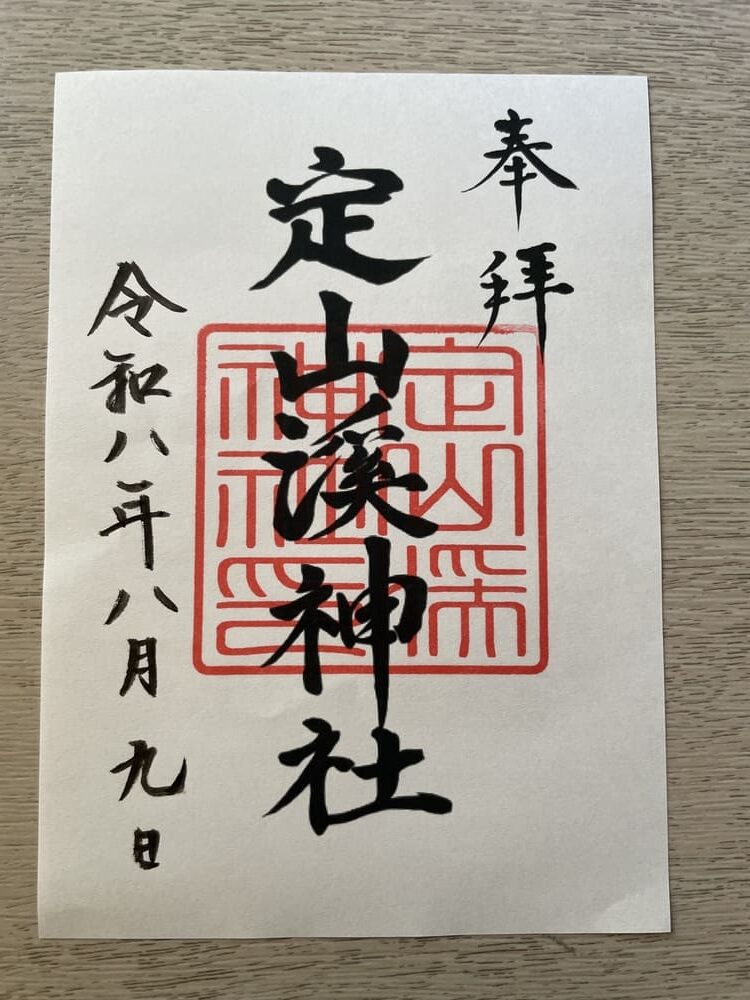 奉拝
定山溪神社
令和八年八月九日
定山
神社印